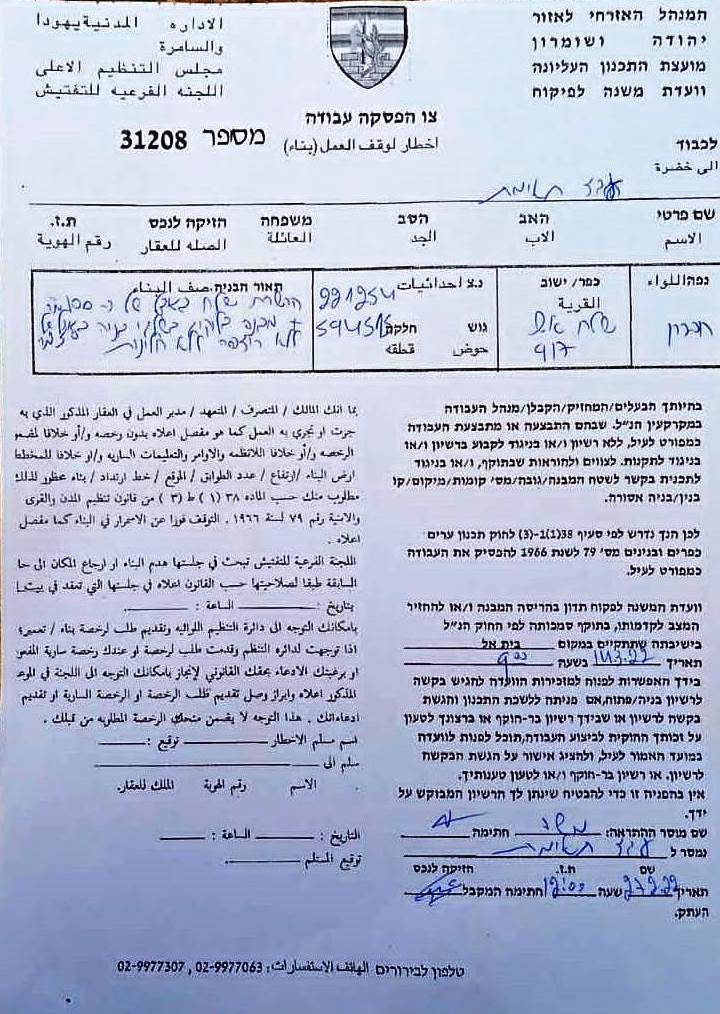 המנהל האזרחי לאזור
יהודה ושומרון
מועצת התכנון העליונה
וועדת משנה לפיקוח
الاداره المدنية يهودا
والسامرة
مجلس التنظيم الاعلى
اللجنه الفرعيه للتفتيش
צו הפסקה עבודה
اخطار لوقف العمل (بناء)
מספר 31208
לכבוד
الى خضرة
שם פרטי האב הסב משפחה הזיקה לנכס ת.ז.
الاسم الاب الجد العائلة الصله للعقار رقم الهوية
נפה اللواء
חברון
כפר/ ישוב
القرية
נ.צ احداثيات
221254
594515
גוש חלקה
حوض قطعه
תאור הבניה. صف البناء
בהיותך הבעלים/המחזיק/הקבלן/מנהל העבודה
במקרקעין הנ"ל. שבהם התבצעה או מתבצעת העבודה
כמפורט לעיל, ללא רשיון ו/או בניגוד לקבוע ברשיון ו/או
בניגוד לתקנות. לצווים ולהוראות שבתוקף, ו/או בניגוד
לתכנית בקשר לשטח המבנה/גובה/מס' קומות/מיקום/קו
בנין/בניה אסורה.
לכן הנך נדרש לפי סעיף 38(1)-(3) לחוק תכנון ערים
כפרים ובנינים מס' 79 לשנת 1966 להפסיק את העבודה
כמפורט לעיל.
וועדת המשנה לפקוח תדון בהריסה המבנה ו/או להחזיר
המצב לקדמותו, בתוקף סמכותה לפי החוק הנ"ל
בישיבתה שתתקיים במקום בית אל
תאריך 14.3.22 בשעה
בידך האפשרות לפנות למזכירות הוועדה להגיש בקשה
לרשיון בניה/פתוח,אם פניתה ללשכת התכנון והגשת
בקשה לרשיון או שבידך רשיון בר-תוקף או ברצונך לטעון
על זכותך החוקית לביצוע העבודה,תוכל לפנות לוועדה
במועד האמור לעיל, ולהציג אישור על הגשת הבקשה
לרשיון. או רשיון בר-תוקף ו/או לטעון טענותיך.
אין בהפניה זו כדי להבטיח שינתן לך הרשיון המבוקש על
ידך.
שם מוסר ההתראה: משה חתימה
נמסר ל
שם ת.ז. חזיקה לנכס
תאריך 27.2.22 שעה 12:00 חתימה המקבל
העתק.
بما انك المالك / المتصرف / المتعهد / مدير العمل في العقار المذكور الذي به
جرت او تجري به العمل كما هو مفصل اعلاه بدون رخصه و/أو خلافا لمضمو
الرخصه و/أو خلافا للانظمه والاوامر والتعليمات الساريه و/او خلافا للمخطط
ارض البناء /ارتفاع / عدد الطوابق / الموقع / خط ارتداد / بناء محظور لذلك
مطلوب منك حسب الماده ٣٨ (١) ط (٣) من قانون تنظيم المدن والقرى
والابنية رقم ٧٩ لسنة ١٩٦٦ . التوقف فورًا عن الاستمرار في البناء كما مفصل
اعلاه .
اللجنة الفرعية للتفتيش تبحث في جلستها هدم البناء او ارجاع المكان الى حا
السابقة طبقا لصلاحيتها حسب القانون اعلاه في جلستها التي تعقد في بيت
بتاريخ : الساعة :
بامكانك التوجه الى دائرة التنظيم اللوائيه وتقديم طلب لرخصة بناء / تعمير؛
اذا توجهت لدائره التنظم وقدمت طلب لرخصة او عندك رخصة سارية المفعو
او برغبتك الادعاء بحقك القانوني لإنجاز بامكانك التوجه الى اللجنة في الموع
المذكور اعلاه وابراز وصل تقديم طلب الرخصة او الرخصة السارية او تقديم
ادعاءاتك . هذا التوجه لا يضمن منحك الرخصة المطلوبه من قبلك .
اسم مسلم الاخطار توقيع :
سلم الى
الاسم رقم الهوية الملك للعقار.
التاريخ : الساعة :
توقيع المستلم
טלפון לבירורים الهاتف الاستفسارات: 02-9977063 , 02-9977307